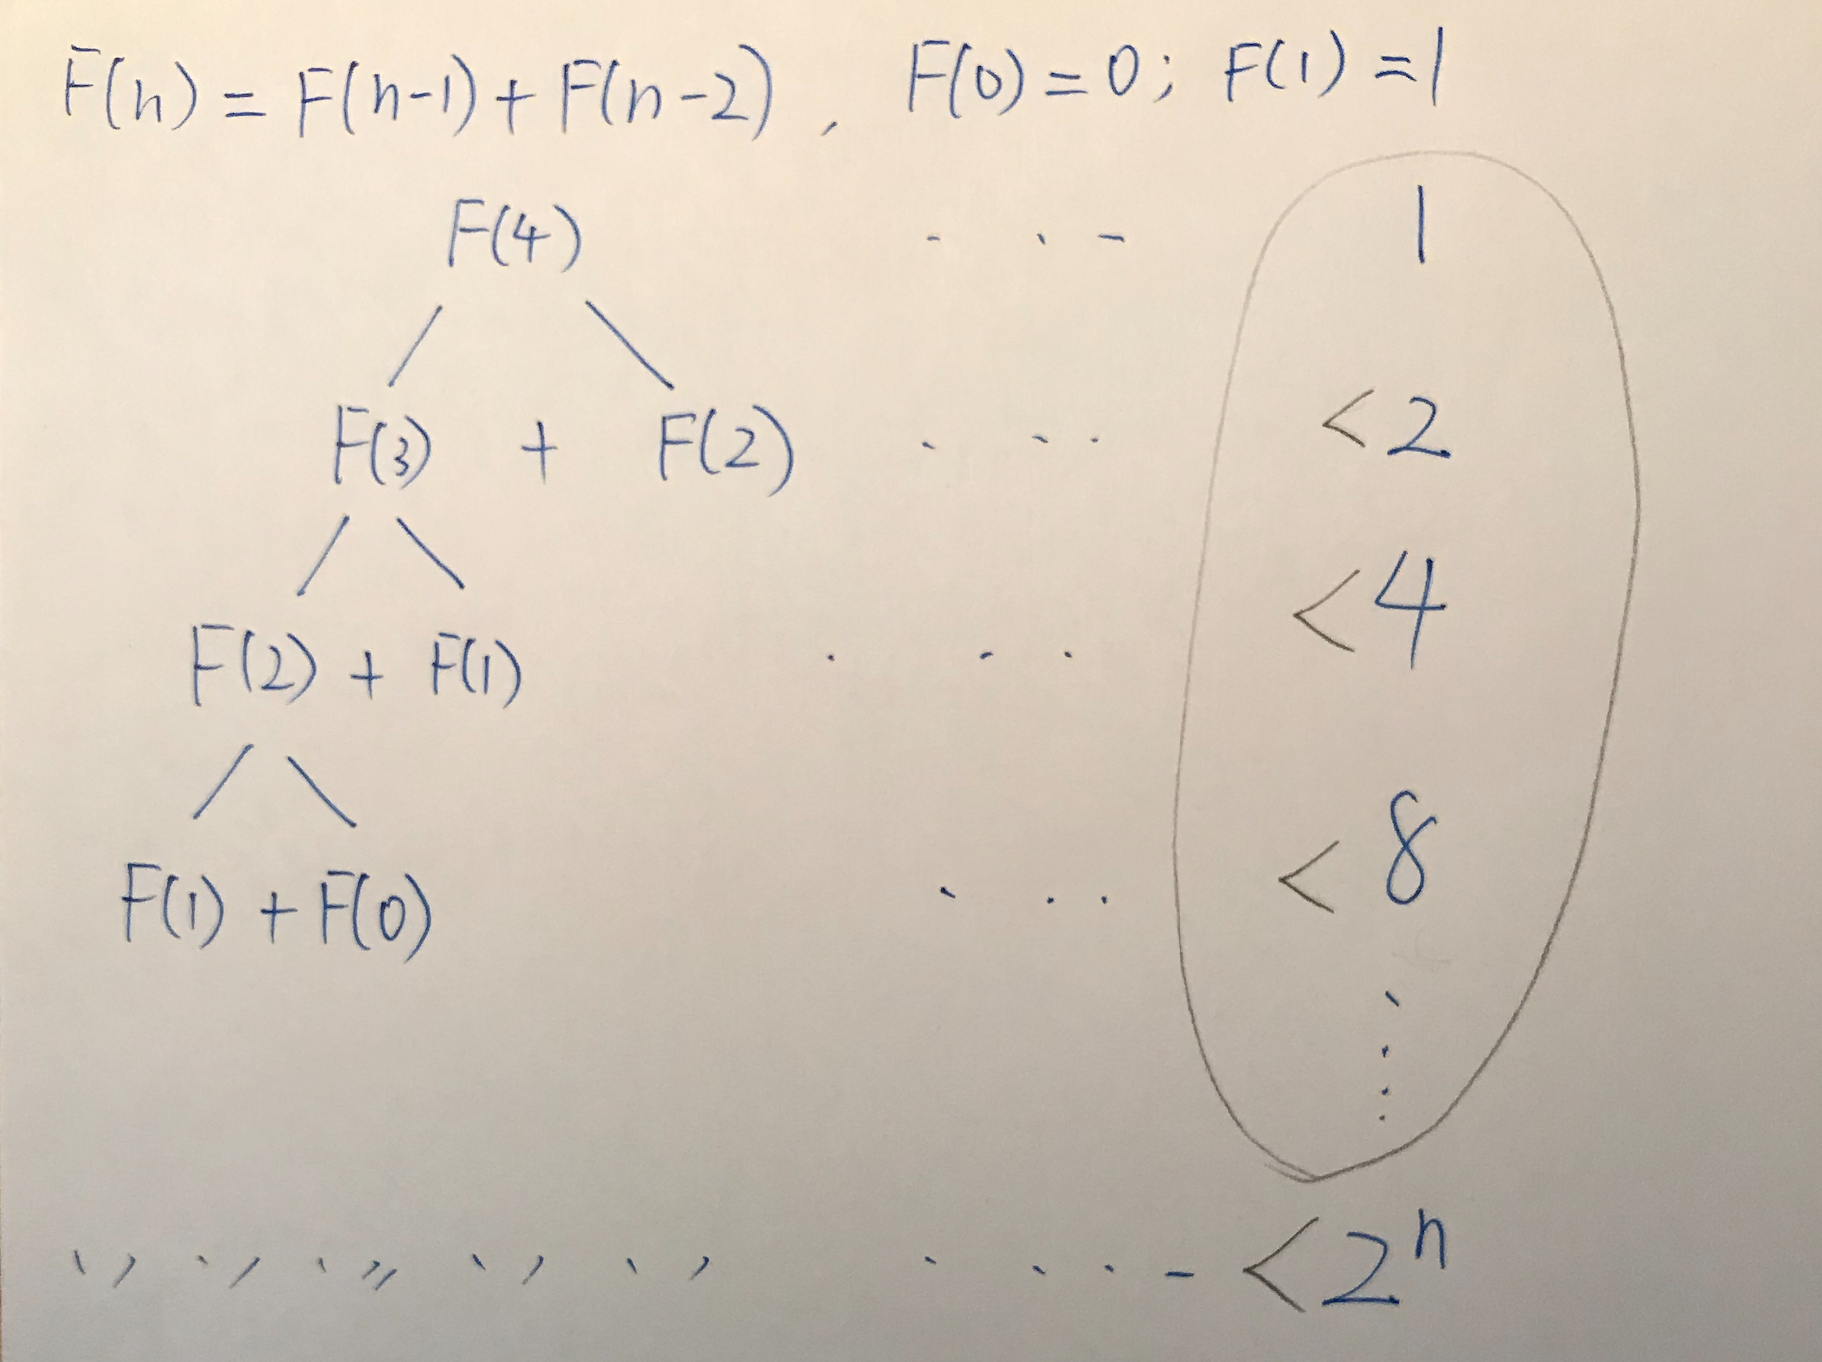 F(n) = F(n-1) + F(n-2), F(0) = 0; F(1) = 1
F(4) ... 1
F(3) + F(2) ... < 2
F(2) + F(1) ... < 4
F(1) + F(0) ... < 8
< 2ⁿ